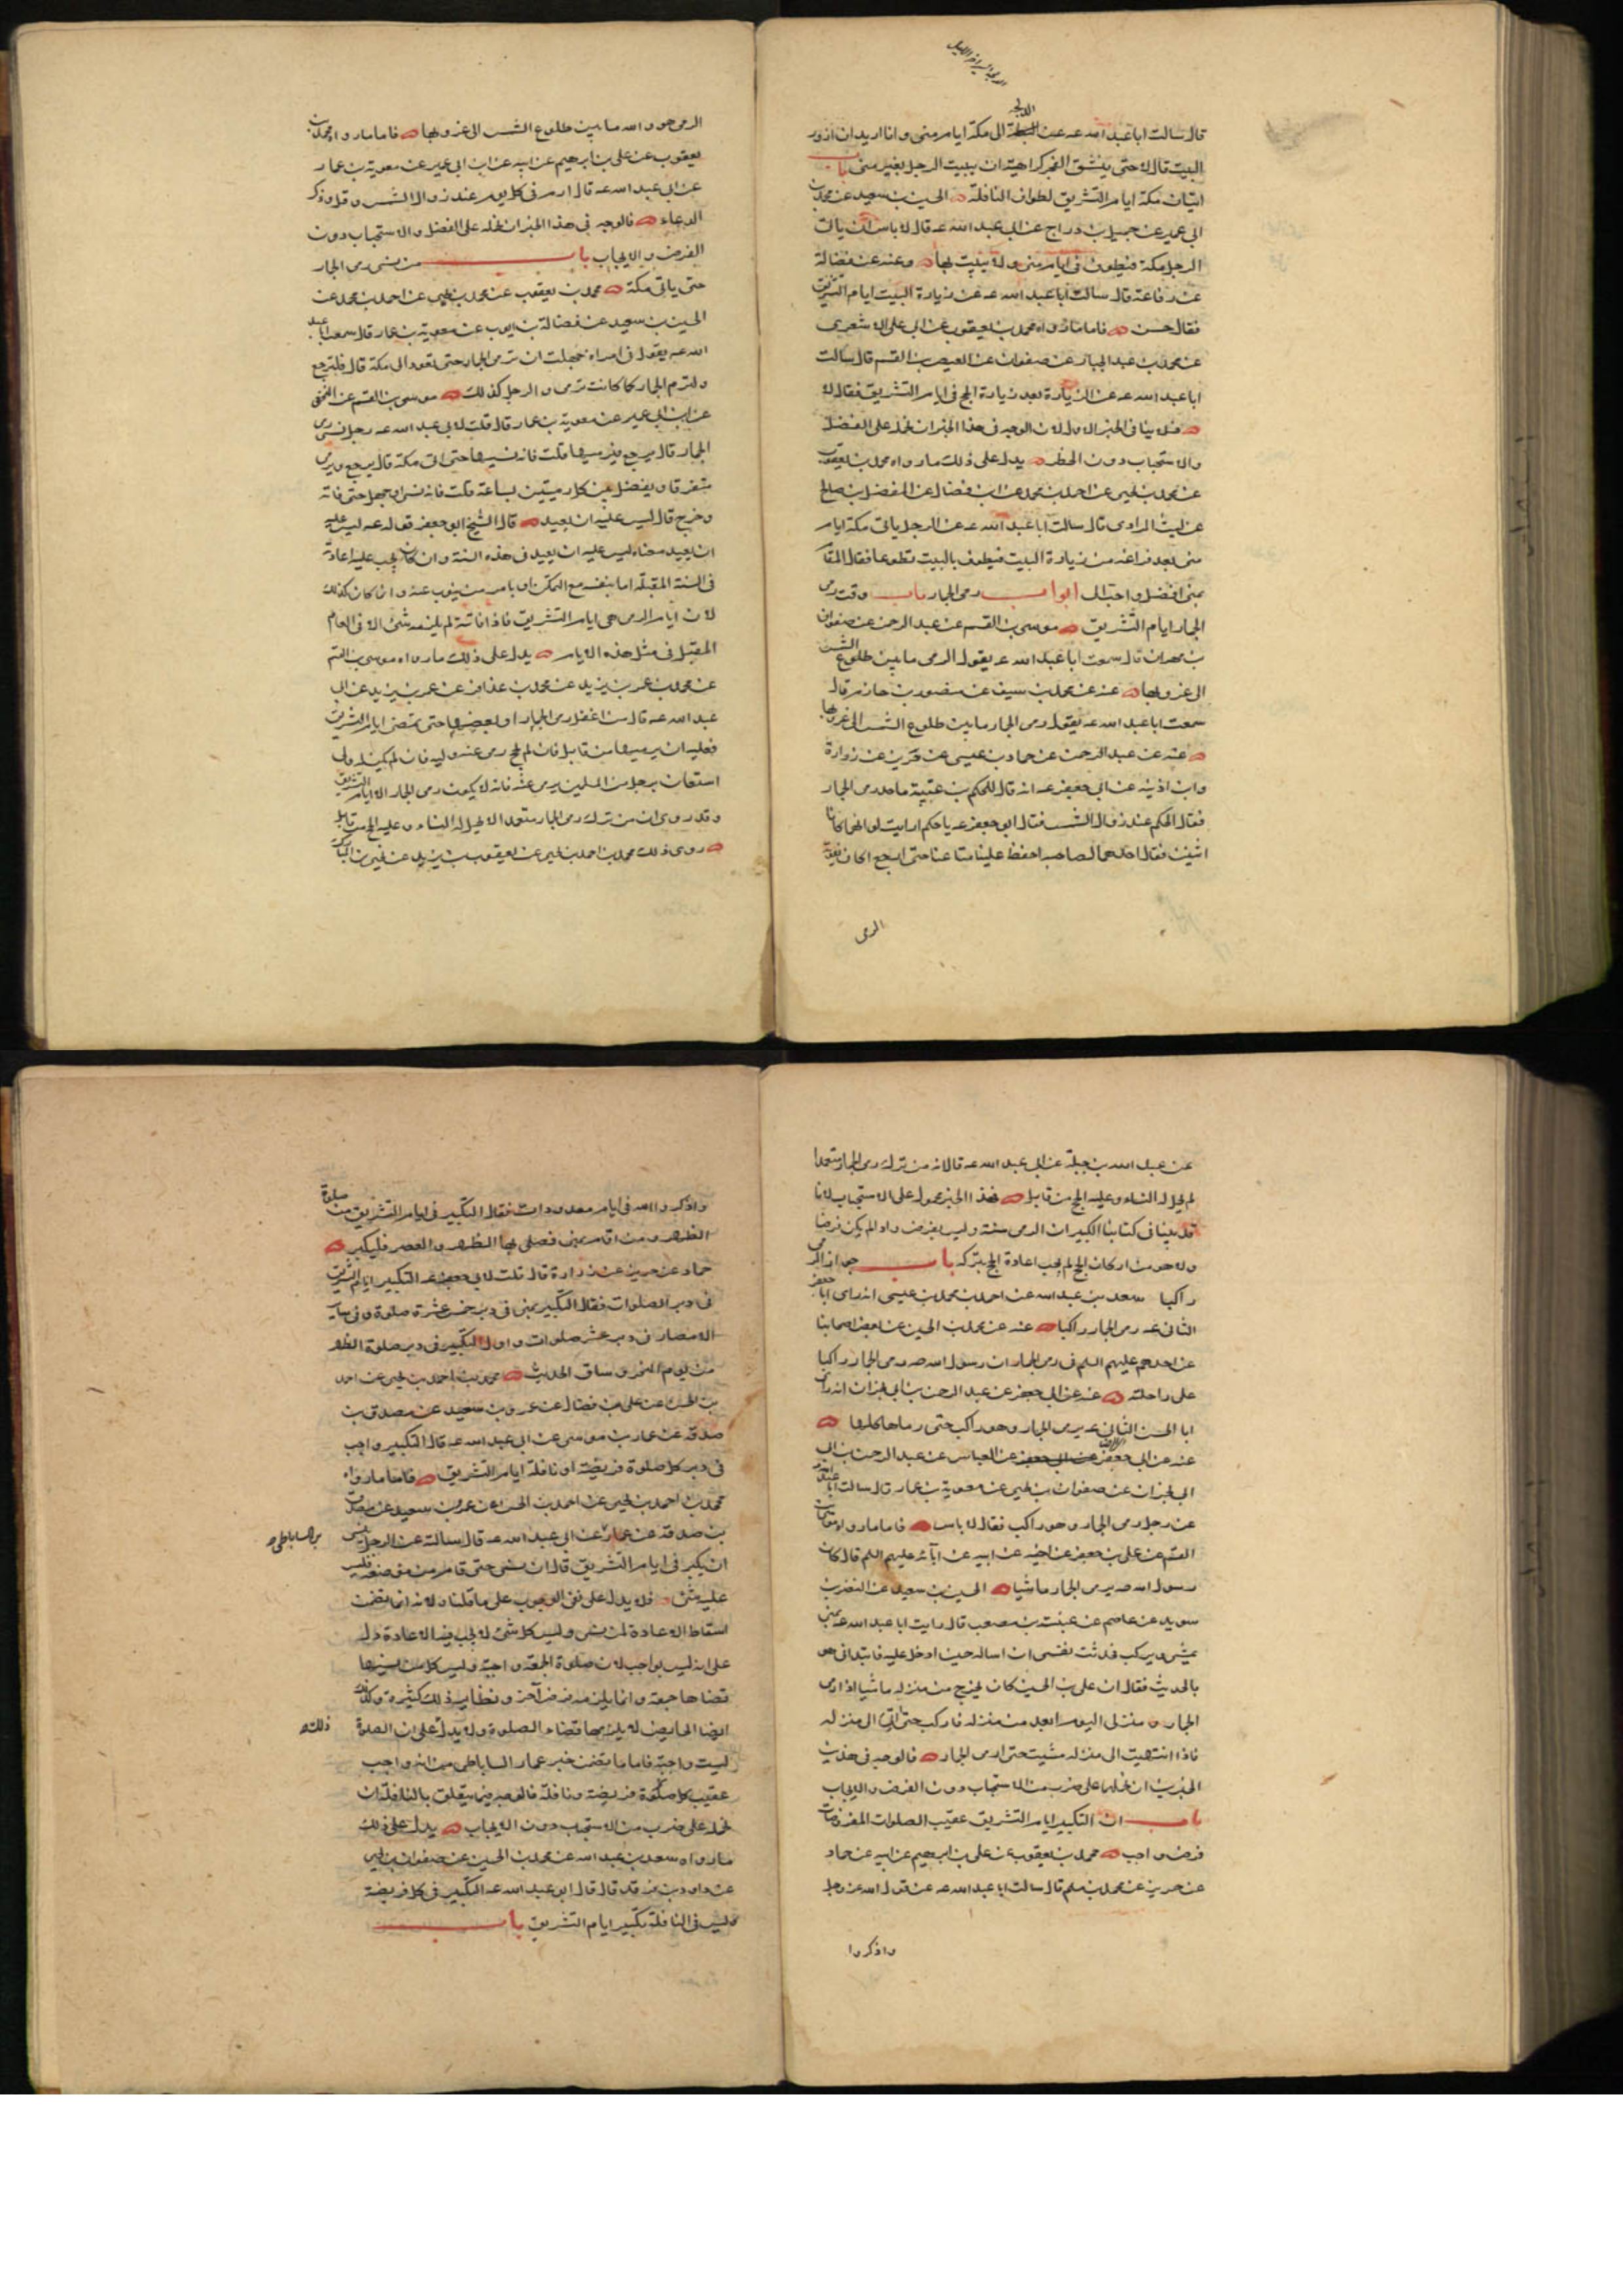 الدلجة
قال سالت ابا عبد الله عه عن الى مكة ايام منى وانا اريد ان ازور
البيت قال لا حتى ينشق الفجر كراهية ان يبيت الرجل بغير منى باب
اتيان مكة ايام التشريق لطواف النافلة الحسين بن سعيد عن محمد بن
ابى عمير عن جميل بن دراج عن ابى عبد الله عه قال لا باس ان ياتى
الرجل مكة فيطوف فى ايام منى ولا يبيت بها وعنه عن فضالة
عن رفاعة قال سالت ابا عبد الله عه عن زيارة البيت ايام التشريق
فقال حسن فاما ما رواه محمد بن يعقوب عن ابى على الاشعرى
عن محمد بن عبد الجبار عن صفوان عن العيص بن القسم قال سالت
ابا عبد الله عه عن الزيارة بعد زيارة الحج فى ايام التشريق فقال لا
فلا ينافى الخبر الاول لان الوجه فى هذا الخبر ان نحمله على الفضل
والاستحباب دون الحظر يدل على ذلك ما رواه محمد بن يعقوب
عن محمد بن يحيى عن احمد بن محمد عن ابن فضال عن المفضل بن صالح
عن ليث المرادى قال سالت ابا عبد الله عه عن الرجل ياتى مكة ايام
منى بعد فراغه من زيارة البيت فيطوف بالبيت تطوعا فقال المقام
بمنى افضل واحب الى ابواب رمى الجمار باب وقت رمى
الجمار ايام التشريق موسى بن القسم عن عبد الرحمن عن صفوان
بن مهران قال سمعت ابا عبد الله عه يقول الرمى ما بين طلوع الشمس
الى غروبها عنه عن محمد بن سيف عن منصور بن حازم قال
سمعت ابا عبد الله عه يقول رمى الجمار ما بين طلوع الشمس الى غروبها
عنه عن عبد الرحمن عن حماد بن عيسى عن حريز عن زرارة
وابن اذينه عن ابى جعفر عه انه قال للحكم بن عتيبة ما حد رمى الجمار
فقال الحكم عند زوال الشمس فقال ابو جعفر عه يا حكم ارايت لو انهما كانا
اثنين فقال احدهما لصاحبه احفظ علينا متاعنا حتى ارجع اكان يفوته
الرمى
الرمى هو والله ما بين طلوع الشمس الى غروبها فاما ما رواه محمد بن
يعقوب عن على بن ابرهيم عن ابيه عن ابن ابى عمير عن معوية بن عمار
عن ابى عبد الله عه قال ارم فى كل يوم عند زوال الشمس وقل وذكر
الدعاء فالوجه فى هذا الخبر ان نحمله على الفضل والاستحباب دون
الفرض والايجاب باب من نسى رمى الجمار
حتى ياتى مكة محمد بن يعقوب عن محمد بن يحيى عن احمد بن محمد عن
الحسين بن سعيد عن فضالة بن ايوب عن معوية بن عمار قال سمعت ابا عبد
الله عه يقول فى امراة جهلت ان ترمى الجمار حتى تعود الى مكة قال فلترجع
ولترم الجمار كما كانت ترمى والرجل كذلك موسى بن القسم عن النخعى
عن ابن ابى عمير عن معوية بن عمار قال قلت لابى عبد الله عه رجل نسى رمى
الجمار قال يرجع فيرميها قلت فانه نسيها حتى اتى مكة قال يرجع ويرمى
متفرقا ويفصل بين كل رميتين بساعة قلت فانه نسى او جهل حتى فاته
وخرج قال ليس عليه ان يعيد قال الشيخ ابو جعفر قوله عه ليس عليه
ان يعيد معناه ليس عليه ان يعيد فى هذه السنة وان كان يجب عليه اعادة
فى السنة المقبلة اما بنفسه مع التمكن او يامر من ينوب عنه وانما كان كذلك
لان ايام الرمى هى ايام التشريق فاذا فاتته لم يلزمه شئ الا فى العام
المقبل فى مثل هذه الايام يدل على ذلك ما رواه موسى بن القسم
عن محمد بن عمر بن يزيد عن محمد بن عذافر عن عمر بن يزيد عن ابى
عبد الله عه قال من اغفل رمى الجمار او بعضها حتى تمضى ايام التشريق
فعليه ان يرميها من قابل فان لم يحج رمى عنه وليه فان لم يكن له ولى
استعان برجل من المسلمين يرمى عنه فانه لا يكون رمى الجمار الا ايام التشريق
وقد روى ان من ترك رمى الجمار متعمدا لا تحل له النساء وعليه الحج من قابل
روى ذلك محمد بن احمد بن يحيى عن يعقوب بن يزيد عن يحيى بن المبارك
عن عبد الله بن جبلة عن ابى عبد الله عه قال انه من ترك رمى الجمار متعمدا
لم تحل له النساء وعليه الحج من قابل فهذا الخبر محمول على الاستحباب لانا
قد بينا فى كتابنا الكبير ان الرمى سنة وليس بفرض واذا لم يكن فرضا
ولا هو من اركان الحج لم يجب اعادة الحج بتركه باب جواز الرمى
راكبا سعد بن عبد الله عن احمد بن محمد بن عيسى انه راى ابا جعفر
الثانى عه رمى الجمار راكبا عنه عن محمد بن الحسين عن بعض اصحابنا
عن احدهم عليهم السلم فى رمى الجمار ان رسول الله صه رمى الجمار راكبا
على راحلته عنه عن ابى جعفر عن عبد الرحمن بن ابى نجران انه راى
ابا الحسن الثانى عه يرمى الجمار وهو راكب حتى رماها كلها
عنه عن ابى جعفر عن العباس عن عبد الرحمن بن ابى
ابى نجران عن صفوان بن يحيى عن معوية بن عمار قال سالت ابا عبد الله
عن رجل رمى الجمار وهو راكب فقال لا باس فاما ما رواه موسى بن
القسم عن على بن جعفر عن اخيه عن ابيه عن آبائه عليهم السلم قال كان
رسول الله صه يرمى الجمار ماشيا الحسين بن سعيد عن النضر بن
سويد عن عاصم عن عنبسة بن مصعب قال رايت ابا عبد الله عه بمنى
يمشى ويركب فحدثت نفسى ان اساله حين ادخل عليه فابتدانى هو
بالحديث فقال ان على بن الحسين كان يخرج من منزله ماشيا اذا رمى
الجمار ومنزلى اليوم ابعد من منزله فاركب حتى آتى الى منزله
فاذا انتهيت الى منزله مشيت حتى ارمى الجمار فالوجه فى هذين
الخبرين ان نحملهما على ضرب من الاستحباب دون الفرض والايجاب
باب ان التكبير ايام التشريق عقيب الصلوات المفروضات
فرض واجب محمد بن يعقوب عن على بن ابرهيم عن ابيه عن حماد
عن حريز عن محمد بن مسلم قال سالت ابا عبد الله عه عن قول الله عز وجل
واذكروا
واذكروا الله فى ايام معدودات فقال التكبير فى ايام التشريق من صلوة
الظهر ومن اقام بمنى فصلى بها الظهر والعصر فليكبر
حماد عن حريز عن زرارة قال قلت لابى جعفر عه التكبير ايام التشريق
فى دبر الصلوات فقال التكبير بمنى فى دبر خمس عشرة صلوة وفى ساير
الامصار فى دبر عشر صلوات واول التكبير فى دبر صلوة الظهر
من يوم النحر وساق الحديث محمد بن احمد بن يحيى عن احمد
بن الحسن عن على بن فضال عن عمرو بن سعيد عن مصدق بن
صدقة عن عمار بن موسى عن ابى عبد الله عه قال التكبير واجب
فى دبر كل صلوة فريضة او نافلة ايام التشريق فاما ما رواه
محمد بن احمد بن يحيى عن احمد بن الحسن عن عمرو بن سعيد عن مصدق
بن صدقة عن عمار عن ابى عبد الله عه قال سالته عن الرجل ينسى
الساباطى
ان يكبر فى ايام التشريق قال ان نسى حتى قام من موضعه فليس
عليه شئ فلا يدل على نفى الوجوب على ما قلناه لانه انما تضمن
اسقاط الاعادة لمن نسى وليس كل شئ لا يجب فيه الاعادة دل
على انه ليس بواجب لان صلوة الجمعة واجبة وليس كل من نسيها
قضاها جمعة وانما يلزمه فرض آخر ونظاير ذلك كثيرة وكذلك
ايضا الحايض لا يلزمها قضاء الصلوة ولا يدل على ان الصلوة
ذلك
ليست واجبة فاما ما تضمن خبر عمار الساباطى من انه واجب
عقيب كل صلوة فريضة ونافلة فالوجه فيما يتعلق بالنافلة ان
نحمله على ضرب من الاستحباب دون الايجاب يدل على ذلك
ما رواه سعد بن عبد الله عن محمد بن الحسين عن صفوان بن يحيى
عن داود بن فرقد قال قال ابو عبد الله عه التكبير فى كل فريضة
وليس فى النافلة تكبير ايام التشريق باب